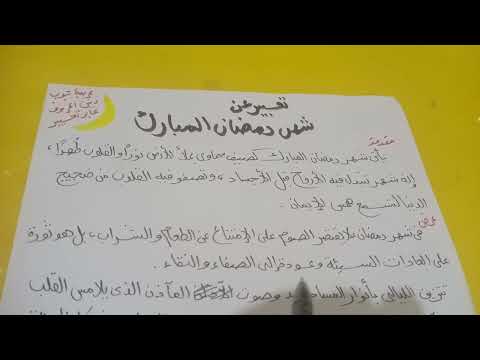 تعبير عن
شهر رمضان المبارك
مقدمة
يأتي شهر رمضان المبارك كضيف سماوي يملأ الأرض نورًا والقلوب طهرًا،
إنه شهر تسمو فيه الأرواح قبل الأجساد، وتصفو فيه القلوب من ضجيج
الدنيا لتسمع همس الإيمان.
عرض
في شهر رمضان لا يقتصر الصوم على الإمتناع عن الطعام والشراب، بل هو ثورة
على العادات السيئة وعودة إلى الصفاء والنقاء.
تتزين الليالي بأنوار المساجد وصوت المآذن الذي يلامس القلب